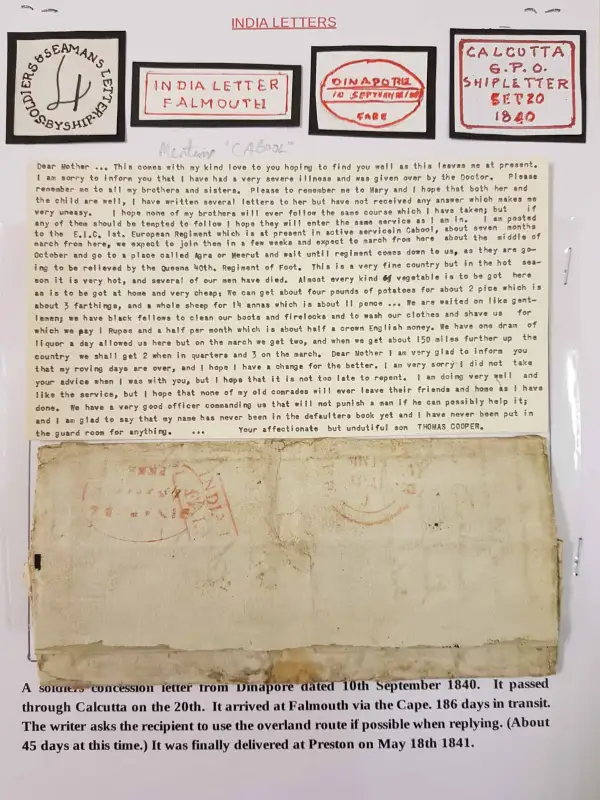 INDIA LETTERS
SOLDIERS & SEAMANS LETTER BY SHIP.
4
INDIA LETTER
FALMOUTH
DINAPORE
10 SEPTEMBER
CALCUTTA
G.P.O.
SHIPLETTER
SET 20
1840
Mentions "CABOOL"
Dear Mother ... This comes with my kind love to you hoping to find you well as this leaves me at present.
I am sorry to inform you that I have had a very severe illness and was given over by the Doctor. Please
remember me to all my brothers and sisters. Please to remember me to Mary and I hope that both her and
the child are well, I have written several letters to her but have not received any answer which makes me
very uneasy. I hope none of my brothers will ever follow the same course which I have taken; but if
any of them should be tempted to follow I hope they will enter the same service as I am in. I am posted
to the E.I.C. 1st. European Regiment which is at present in active servicein Cabool, about seven months
march from here, we expect to join them in a few weeks and expect to march from here about the middle of
October and go to a place called Agra or Meerut and wait until regiment comes down to us, as they are go-
ing to be relieved by the Queens 40th. Regiment of Foot. This is a very fine country but in the hot sea-
son it is very hot, and several of our men have died. Almost every kind of vegetable is to be got here
as is to be got at home and very cheap; We can get about four pounds of potatoes for about 2 pice which is
about 3 farthings, and a whole sheep for 14 annas which is about 11 pence ... We are waited on like gent-
lemen; we have black fellows to clean our boots and firelocks and to wash our clothes and shave us for
which we pay 1 Rupee and a half per month which is about half a crown English money. We have one dram of
liquor a day allowed us here but on the march we get two, and when we get about 150 miles further up the
country we shall get 2 when in quarters and 3 on the march. Dear Mother I am very glad to inform you
that my roving days are over, and I hope I have a change for the better. I am very sorry I did not take
your advice when I was with you, but I hope that it is not too late to repent. I am doing very well and
like the service, but I hope that none of my old comrades will ever leave their friends and home as I have
done. We have a very good officer commanding us that will not punish a man if he can possibly help it;
and I am glad to say that my name has never been in the defaulters book yet and I have never been put in
the guard room for anything. ... Your affectionate but undutiful son THOMAS COOPER.
INDI
A soldiers concession letter from Dinapore dated 10th September 1840. It passed
through Calcutta on the 20th. It arrived at Falmouth via the Cape. 186 days in transit.
The writer asks the recipient to use the overland route if possible when replying. (About
45 days at this time.) It was finally delivered at Preston on May 18th 1841.